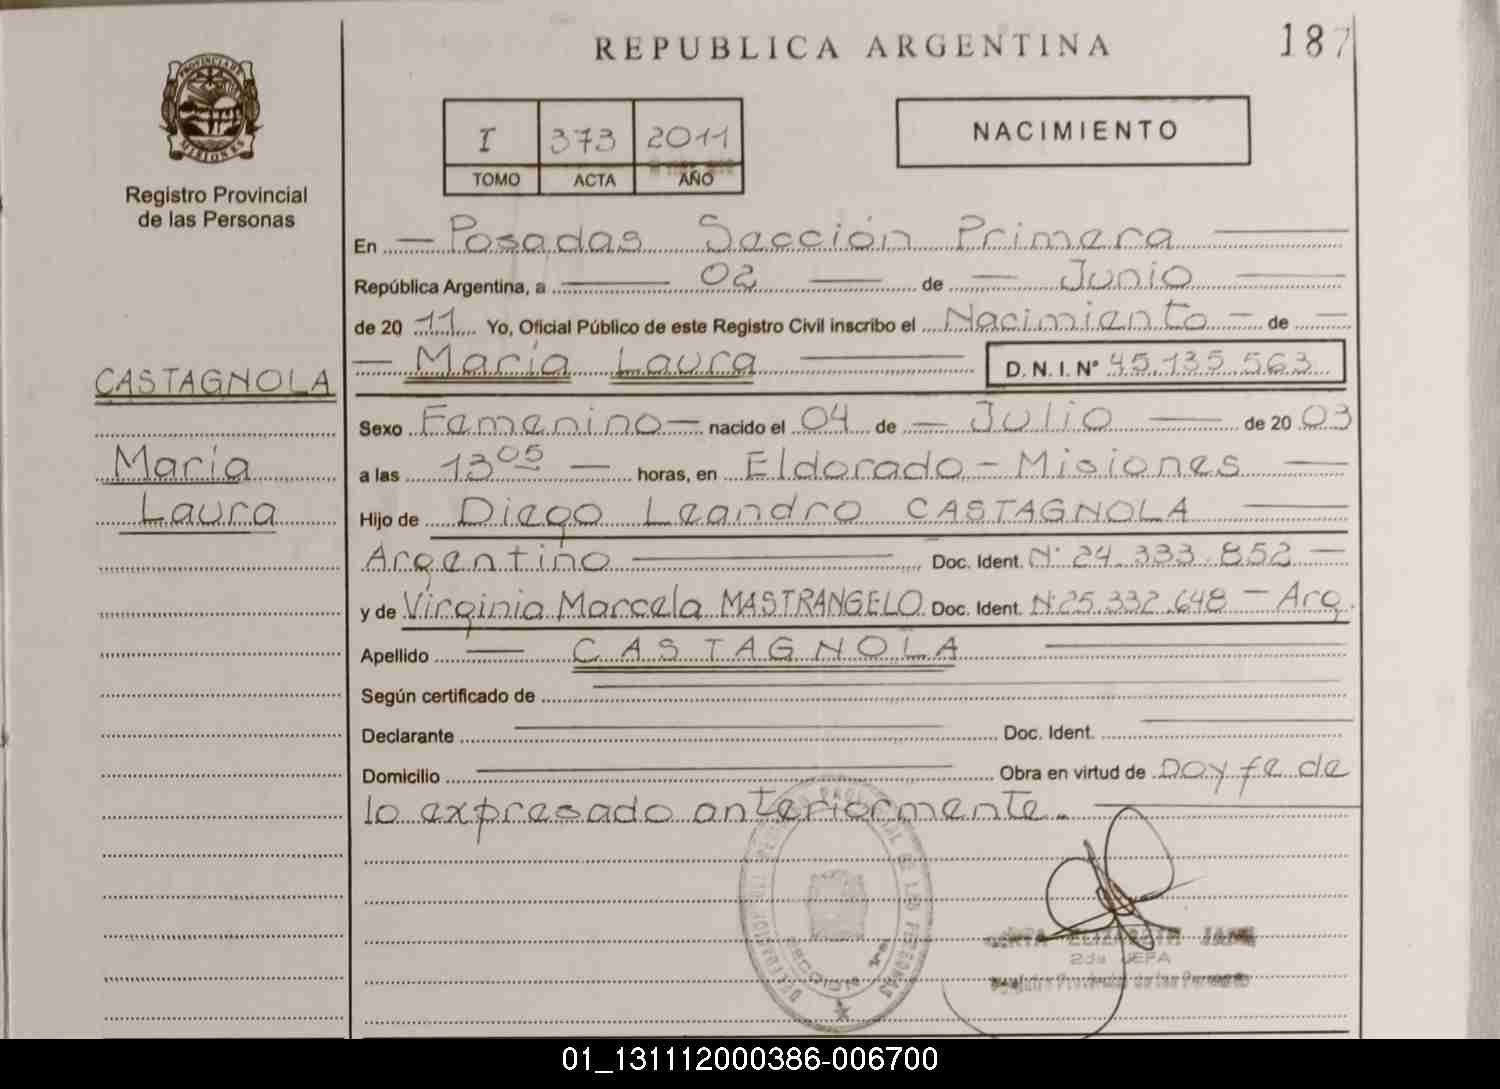 REPUBLICA ARGENTINA
187
PROVINCIA DE
MISIONES
Registro Provincial
de las Personas
I 373 2011
TOMO ACTA AÑO
NACIMIENTO
En Posadas Sección Primera
República Argentina, a 02 de Junio
de 2011 Yo, Oficial Público de este Registro Civil inscribo el Nacimiento de
María Laura D. N. I. N° 45.135.563
CASTAGNOLA
María
Laura
Sexo Femenino nacido el 04 de Julio de 2003
a las 13 05 horas, en Eldorado - Misiones
Hijo de Diego Leandro CASTAGNOLA
Argentino Doc. Ident. N° 24.333.852
y de Virginia Marcela MASTRANGELO Doc. Ident. N° 25.332.648 - Arg.
Apellido CASTAGNOLA
Según certificado de
Declarante Doc. Ident.
Domicilio Obra en virtud de Doy fe de
lo expresado anteriormente.
ELIZABETH
2da JEFA
Provincial de las Personas
SECCION 1ra
01_131112000386-006700